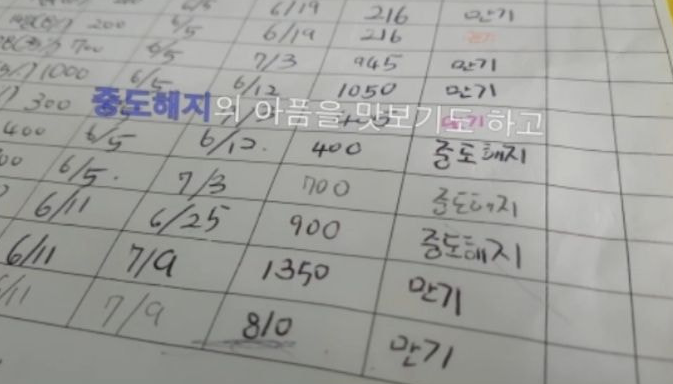 6/5 6/19 216 만기
200 6/5 6/19 216 만기
700 6/5 7/3 945 만기
1000 6/5 6/12 1050 만기
300
중도해지의 아픔을 맛보기도 하고
400 6/5 6/12. 400 중도해지
6/5. 7/3 700 중도해지
6/11 6/25 900 중도해지
6/11 7/9 1350 만기
7/9 810 만기